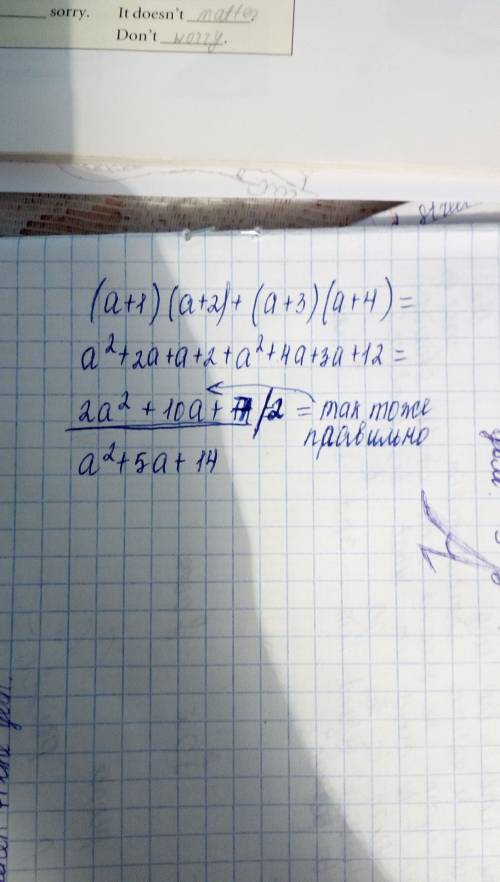 sorry. It doesn't matter.
Don't worry.
(a+1)(a+2)+(a+3)(a+4)=
a²+2a+a+2+a²+4a+3a+12=
2a²+10a+ /2 = так тоже
правильно
a²+5a+14